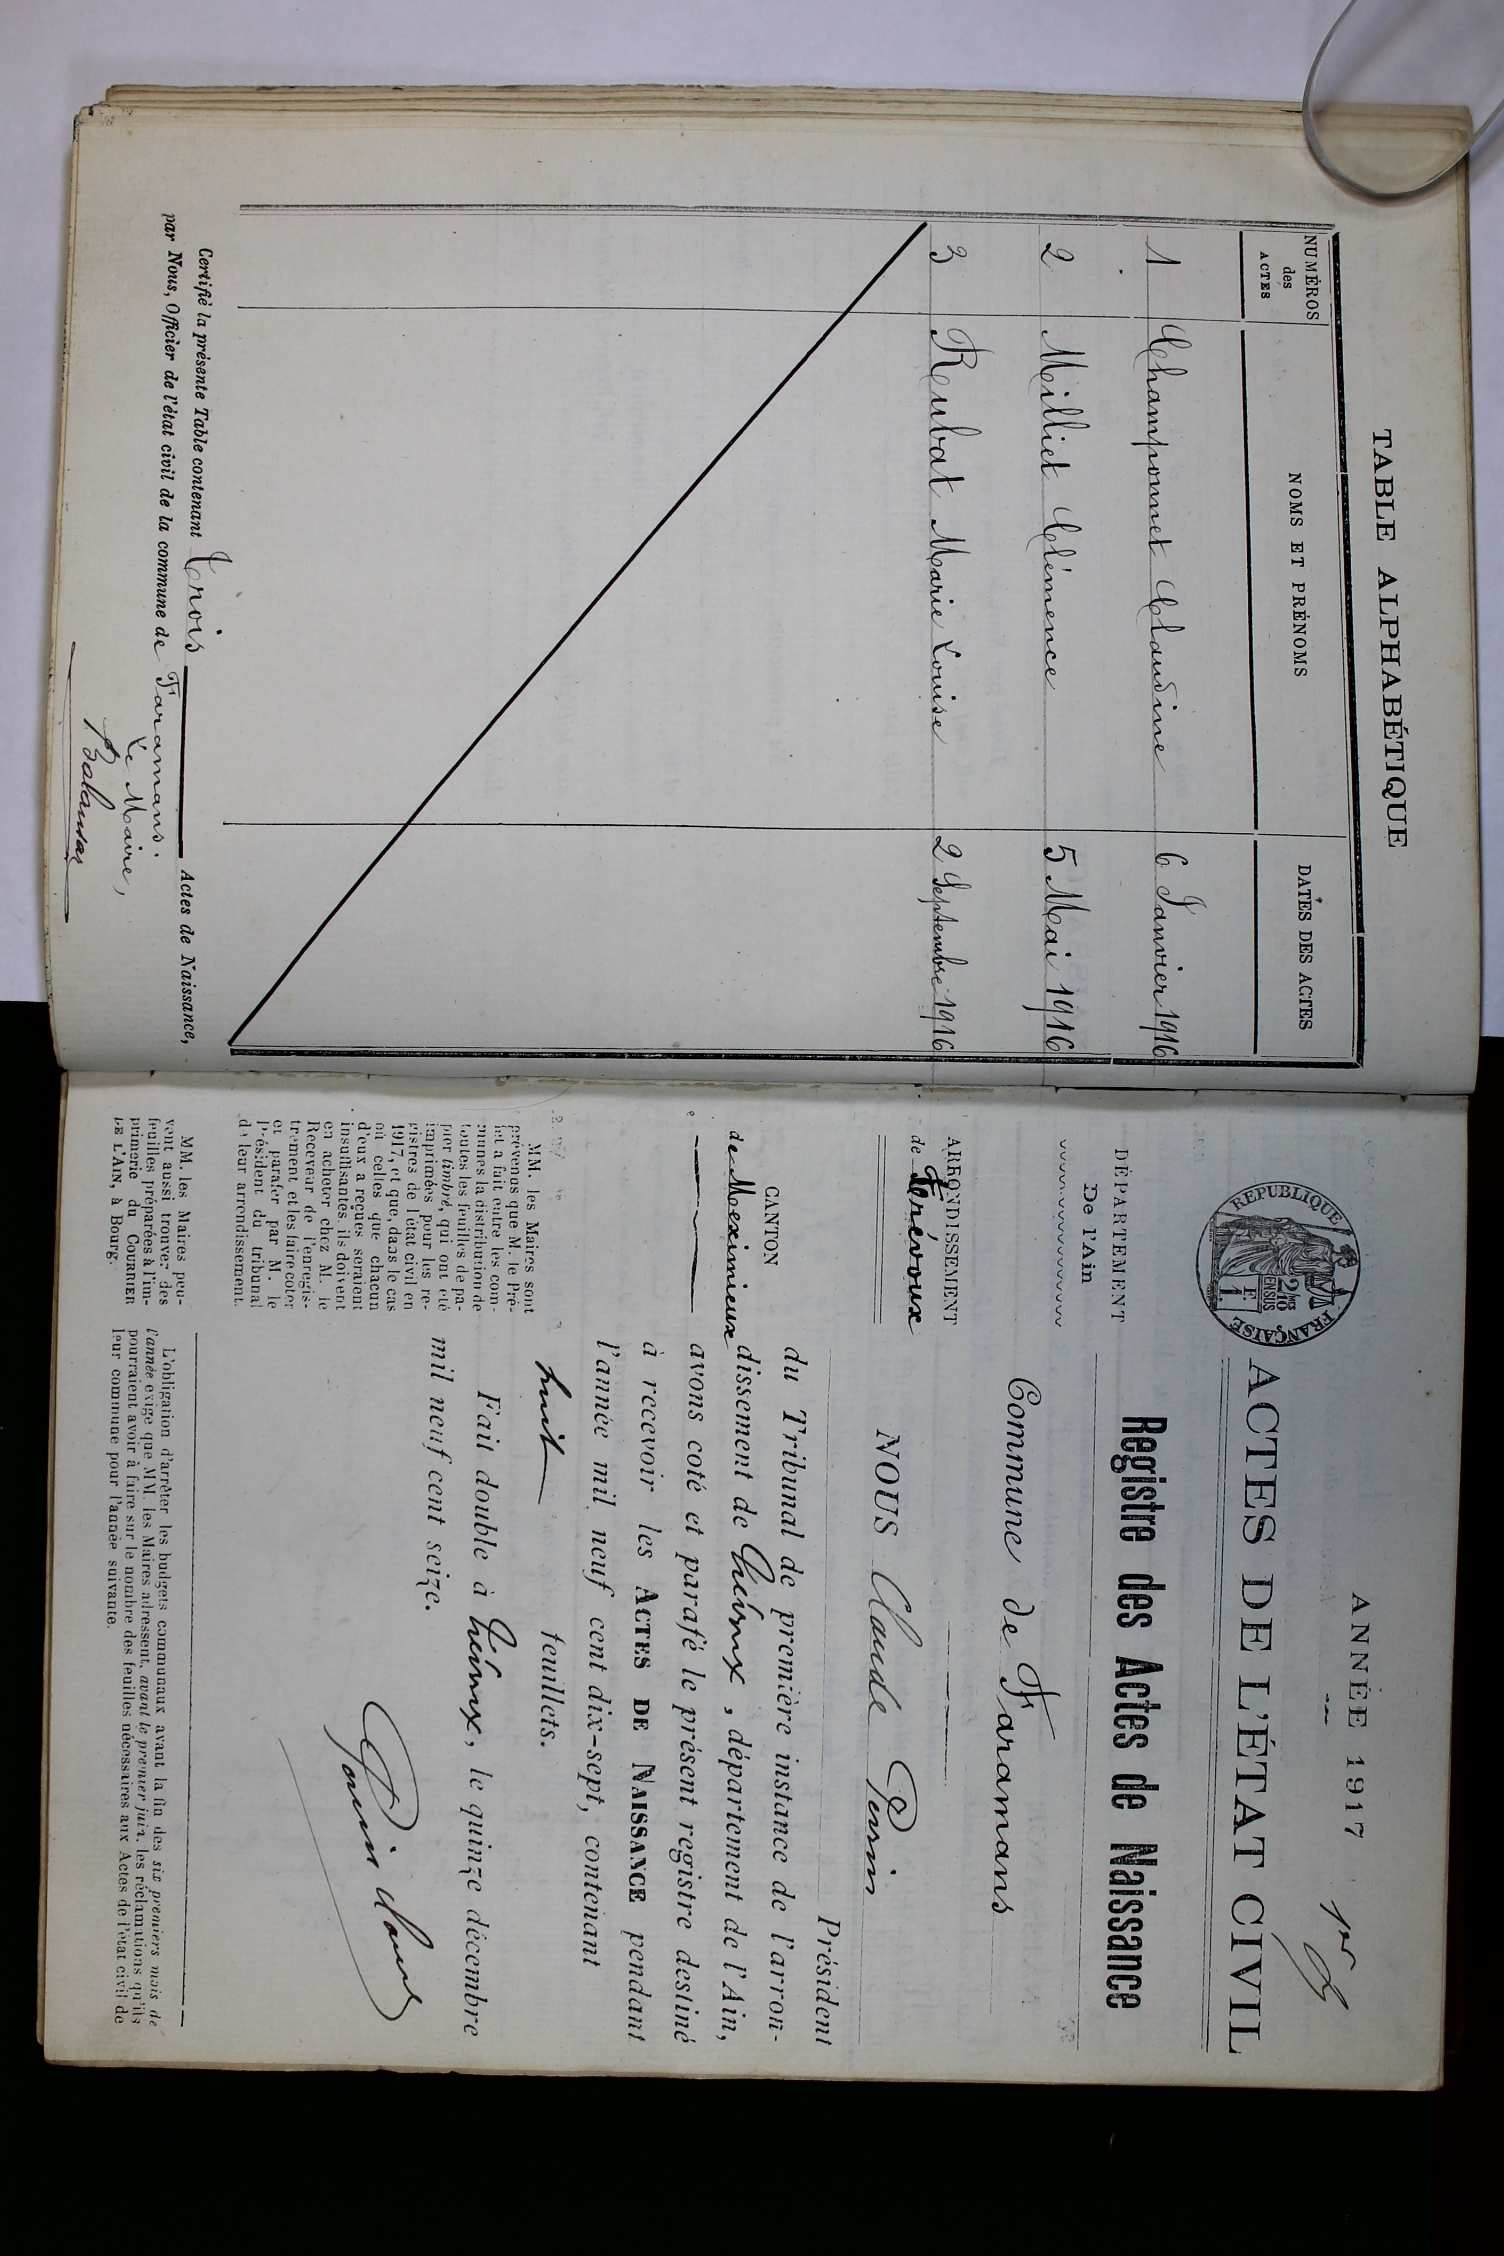 TABLE ALPHABÉTIQUE
NUMÉROS des ACTES
NOMS ET PRÉNOMS
DATES DES ACTES
1 Champonnet Claudine 6 Janvier 1916
2 Milliet Clémence 5 Mai 1916
3 Reubat Marie Louise 2 Septembre 1916
Certifié la présente Table contenant trois Actes de Naissance,
par Nous, Officier de l'état civil de la commune de Faramans.
Le Maire,
ANNÉE 1917
RÉPUBLIQUE FRANÇAISE
2/10 EN SUS
1 F.
ACTES DE L'ÉTAT CIVIL
DÉPARTEMENT
De l'Ain
Registre des Actes de Naissance
Commune de Faramans
ARRONDISSEMENT
de Trévoux
NOUS Claude Perrin
Président
CANTON
de Meximieux
du Tribunal de première instance de l'arron-
dissement de Trévoux, département de l'Ain,
avons coté et parafé le présent registre destiné
à recevoir les ACTES DE NAISSANCE pendant
l'année mil neuf cent dix-sept, contenant
huit feuillets.
Fait double à Trévoux, le quinze décembre
mil neuf cent seize.
MM. les Maires sont
prévenus que M. le Pré-
fet a fait entre les com-
munes la distribution de
toutes les feuilles de pa-
pier timbré, qui ont été
imprimées pour les re-
gistres de l'état civil en
1917, et que, dans le cas
où celles que chacun
d'eux a reçues seraient
insuffisantes, ils doivent
en acheter chez M. le
Receveur de l'enregis-
trement et les faire coter
et parafer par M. le
Président du tribunal
de leur arrondissement.
MM. les Maires peu-
vent aussi trouver des
feuilles préparées à l'im-
primerie du COURRIER
DE L'AIN, à Bourg.
L'obligation d'arrêter les budgets communaux avant la fin des six premiers mois de
l'année exige que MM. les Maires adressent, avant le premier juin, les réclamations qu'ils
pourraient avoir à faire sur le nombre des feuilles nécessaires aux Actes de l'état civil de
leur commune pour l'année suivante.